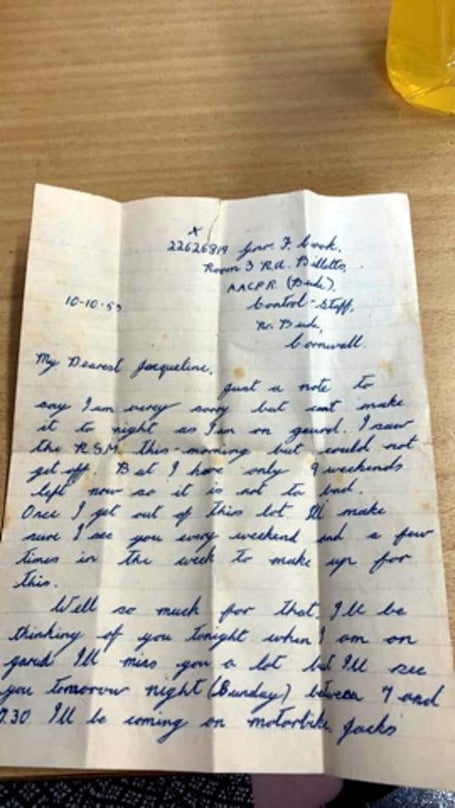 x
22626819 Gnr. F. Cook,
Room 3 R.A. Billetts,
AACPR. (Bude),
10-10-53
Control-Staff,
Nr. Bude,
Cornwall.
My Dearest Jacqueline,
Just a note to
say I am very sorry but cant make
it to night as I am on geurd. I saw
the R.S.M this-morning but could not
get off. But I have only 9 weekends
left now so it is not to bad.
Once I get out of this lot Ill make
sure I see you every weekend and a few
times in the week to make up for
this.
Well so much for that, I'll be
thinking of you tonight when I am on
gaurd. Ill miss you a lot but Ill see
you tomorrow night (Sunday) between 7 and
7.30 I'll be coming on motorbike. Jack's